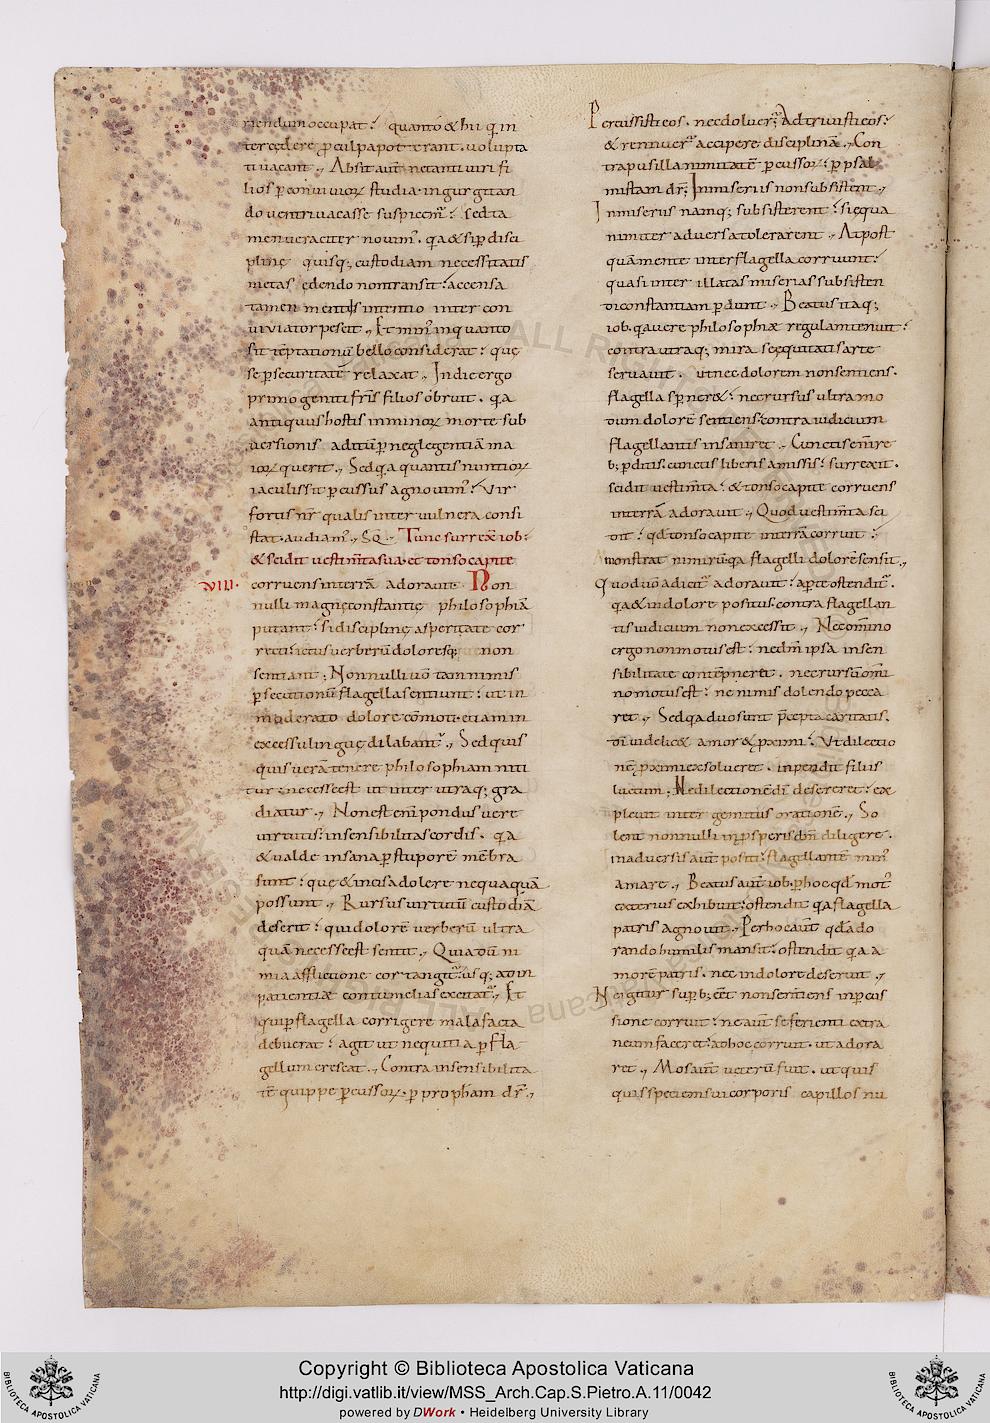 riendum occupat? quanto & hii q̄ in
tercedere p̄ culpa poterant. volupta
ti uacant., Absit aut̄ ne tanti uiri fi
lios p conuiuior̄ studia ingurgitan
do uentri uacasse suspicem̄? sed ta
men ueraciter nouim̄. qa & si p disci
plinę quisq; custodiam necessitatis
metas ędendo non transit? accensa
tamen mentis intentio inter con
uiuia torpescit., Et min̄ in quanto
sit tēptationū bello considerat? quę
se p securitatē relaxat., In die ergo
primo geniti fr̄is filios obruit. qa
antiquus hostis in minor̄ morte sub
uersionis aditū p neglegentiā ma
ior̄ querit., Sed qa quantis nuntior̄
iaculis sit pcussus agnouim̄? Vir
fortis nr̄ qualis inter uulnera consi
stat. audiam̄., SQ. Tunc surrex̄ iob:
& scidit uestim̄ta sua. et tonso capite
corruens in terrā adorauit. Non
VIII.
nulli magnę constantię philosophiā
putant? si disciplinę asperitate cor
recti: ictus uerberū doloresq; non
sentiant; Nonnulli uō tam nimis
p secutionū flagella sentiunt? ut in
moderato dolore cōmoti. etiam in
excessu linguę dilabant̄., Sed quis
quis uerā tenere philosophiam niti
tur? necesse est ut inter utraq; gra
diatur., Non est eni pondus uere
uirtutis? insensibilitas cordis. qa
& ualde insana p stuporē mēbra
sunt? quę & incisa dolere nequaquā
possunt., Rursus uirtutū custodiā
deserit? qui dolorē uerberū ultra
quā necesse est sentit., Quia dū ni
mia afflictione cor tangit̄: usq; ad in
patientiæ contumelias excitat̄., Et
qui p flagella corrigere malefacta
debuerat? agit ut nequitia p fla
gellum crescat., Contra insensibilita
tē quippe pcussor̄. p prophām dr̄.,
Percussisti eos. nec doluer̄; Adtriuisti eos?
& rennuer̄ accipere disciplinā., Con
tra pusillanimitatē pcussor̄? p psal
mistam dr̄; In miseriis non subsistent.,
In miseriis namq; subsisterent? si ęqua
nimiter aduersa tolerarent., At post
quā mente inter flagella corruunt?
quasi inter illatas miserias subsisten
di constantiam pdunt., Beatus itaq;
iob. qa uere philosophiæ regulam tenuit?
contra utraq; mira se ęquitatis arte
seruauit. ut nec dolorem non sentiens.
flagella sperner&? nec rursus ultra mo
dum dolorē sentiens? contra iudicium
flagellantis insaniret., Cunctis em̄ re
b; pditis. cunctis liberis amissis? surrexit.
scidit uestim̄ta? & tonso capite corruens
in terrā adorauit., Quod uestim̄ta sci
dit? qd tonso capite in terrā corruit?
monstrat nimirū qa flagelli dolorē sensit.,
Quod uō adicit̄ adorauit? apte ostendit̄.
qa & in dolore positus: contra flagellan
tis iudicium non excessit., Nec om̄ino
ergo non motus est? ne dm̄ ipsa insen
sibilitate contēpneret. nec rursū om̄i
no motus est? ne nimis dolendo pecca
ret., Sed qa duo sunt p̄cepta caritatis.
di uidelic& amor & p̄ximi? Ut dilectio
nē p̄ximi exsolueret. inpendit filiis
luctum; Ne dilectionē di desereret? ex
pleuit inter gemitus orationē., So
lent nonnulli in p̄speris dm̄ diligere.
in aduersis aut̄ positi? flagellantē min̄
amare., Beatus aut̄ iob. p hoc qd mot̄
exterius exhibuit? ostendit qa flagella
patris agnouit., Per hoc aut̄ qd ado
rando humilis mansit? ostendit qa a
morē patris. nec in dolore deseruit.,
Ne igitur supb; eēt non sentiens in pcus
sione corruit? ne aut̄ se ferienti extra
neum faceret? ad hoc corruit. ut adora
ret., Mos aut̄ ueterū fuit. ut quis
quis speciem sui corporis capillos nu
Copyright © Biblioteca Apostolica Vaticana
http://digi.vatlib.it/view/MSS_Arch.Cap.S.Pietro.A.11/0042
powered by DWork • Heidelberg University Library